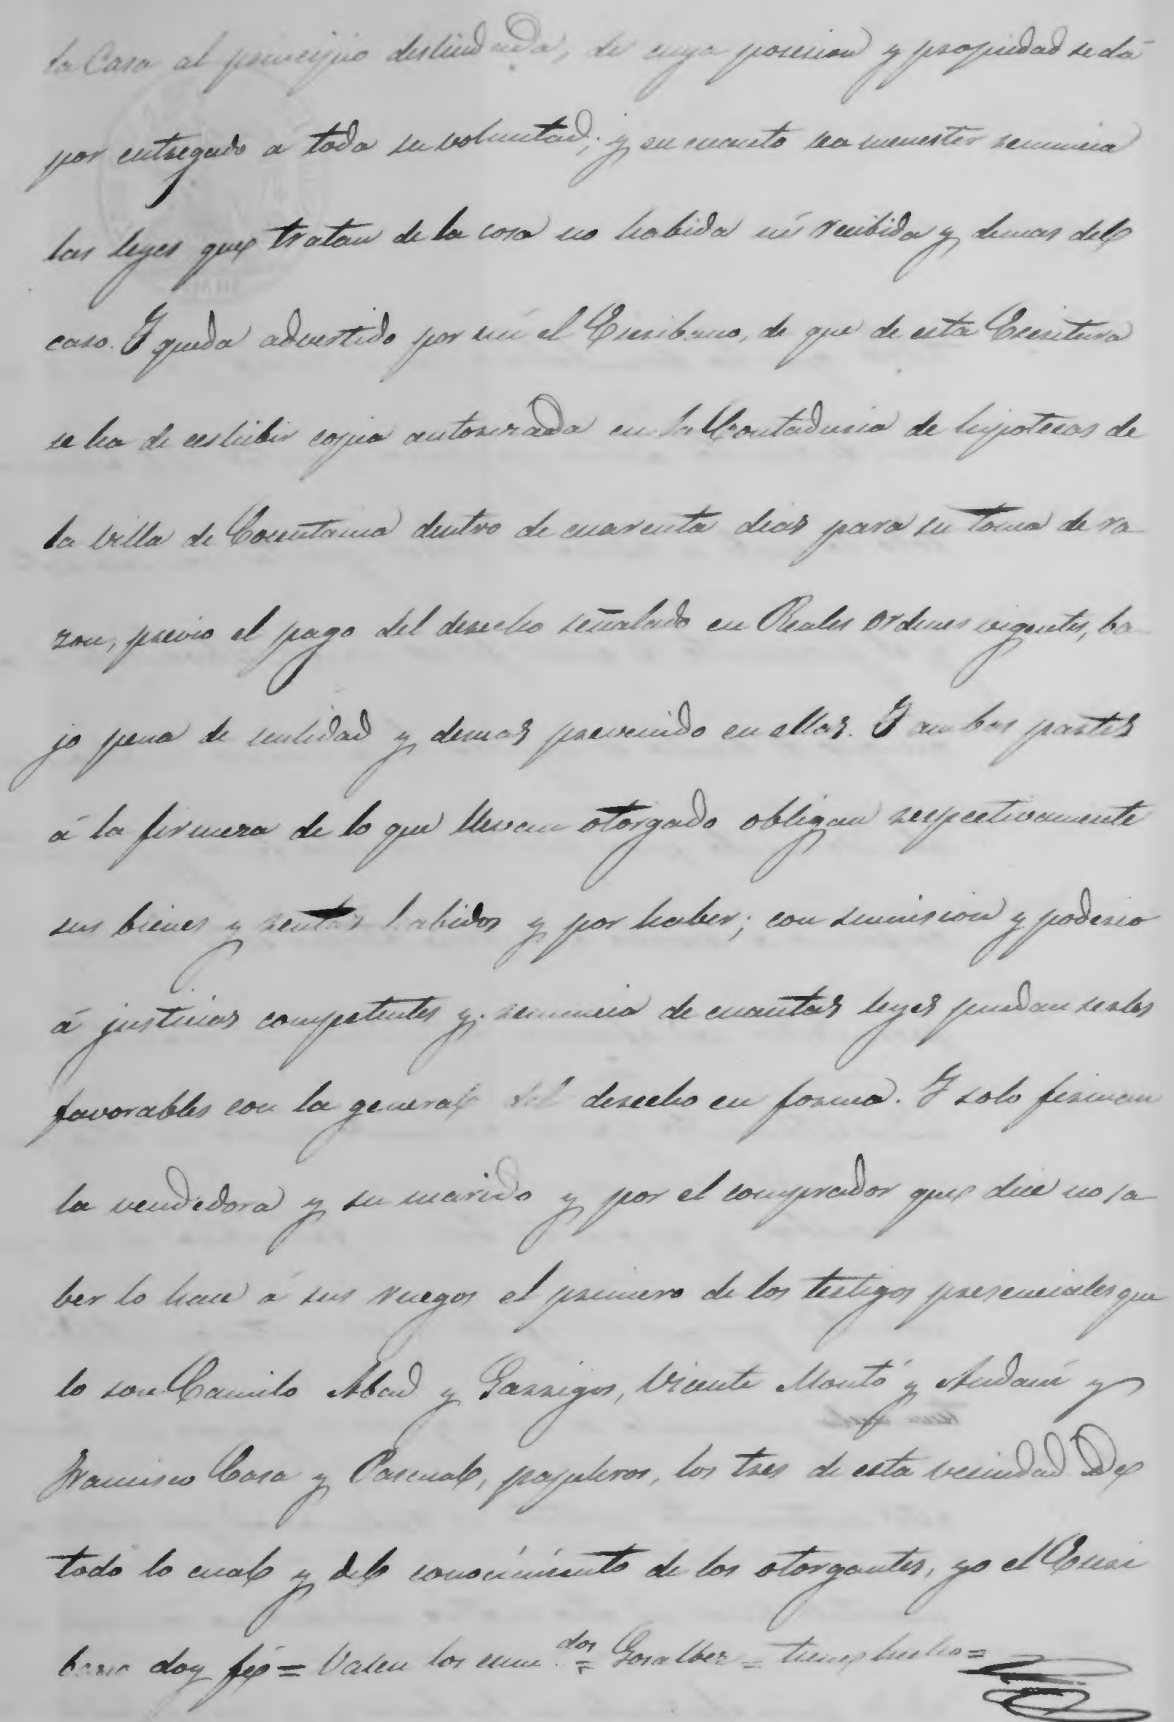 la Casa al principio deslindada, de cuya posesion y propiedad se dá
por entregado á toda su voluntad; y en cuanto sea menester renuncia
las leyes que tratan de la cosa no habida ni recibida y demas del
caso. Y queda advertido por mi el Escribano, de que de esta Escritura
se ha de ecshibir copia autorizada en la Contaduria de hipotecas de
la Villa de Cocentaina dentro de cuarenta dias para su toma de ra-
zon, previo el pago del derecho señalado en Reales Ordenes vigentes, ba-
jo pena de nulidad y demas prevenido en ellas. Y ambas partes
á la firmeza de lo que llevan otorgado obligan respectivamente
sus bienes y rentas habidos y por haber; con sumision y poderio
á justicias competentes y renuncia de cuantas leyes puedan serles
favorables con la general del derecho en forma. Y solo firman
la vendedora y su marido y por el comprador que dice no sa-
ber lo hace á sus ruegos el primero de los testigos presenciales que
lo son Camilo Abad y Garrigos, Vicente Montó y Andani y
Francisco Casa y Pascual, papeleros, los tres de esta vecindad De
todo lo cual y del conocimiento de los otorgantes, yo el Escri
bano doy fé = Valen los enm.dos = Gosalbez = tiene hecho =